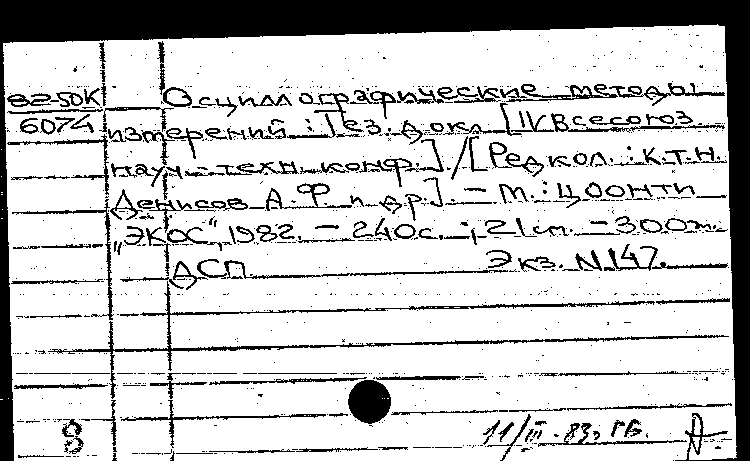 8250К Осциллографические методы
6074 измерений : Тез. докл. [IV Всесоюз.
науч.-техн. конф.] / [Редкол. : к.т.н.
Денисов А.Ф. и др.]. – М. : ЦООНТИ
„ЭКОС", 1982. – 240с. ; 21см. – 300э.
ДСП Экз. N147.
8 11/III-83г. ГБ.